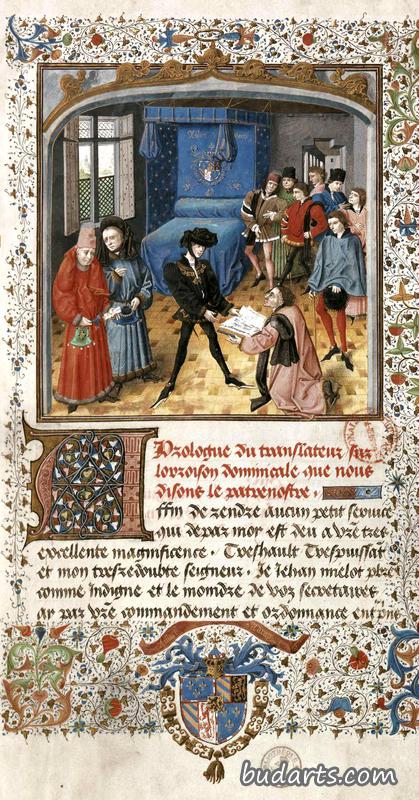 Prologue du translateur sur
lorroison dominicale que nous
disons le patrenostre .
Affin de rendre aucun petit service
qui de par moy est deu a vr̃e tres
excellente magnificence . Treshault Trespuissãt
et mon tresredoubte seigneur . Je Jehan mielot pbr̃e
comme Indigne et le moindre de voz secretaires
ay par vr̃e commandement et ordonnance
budarts.com